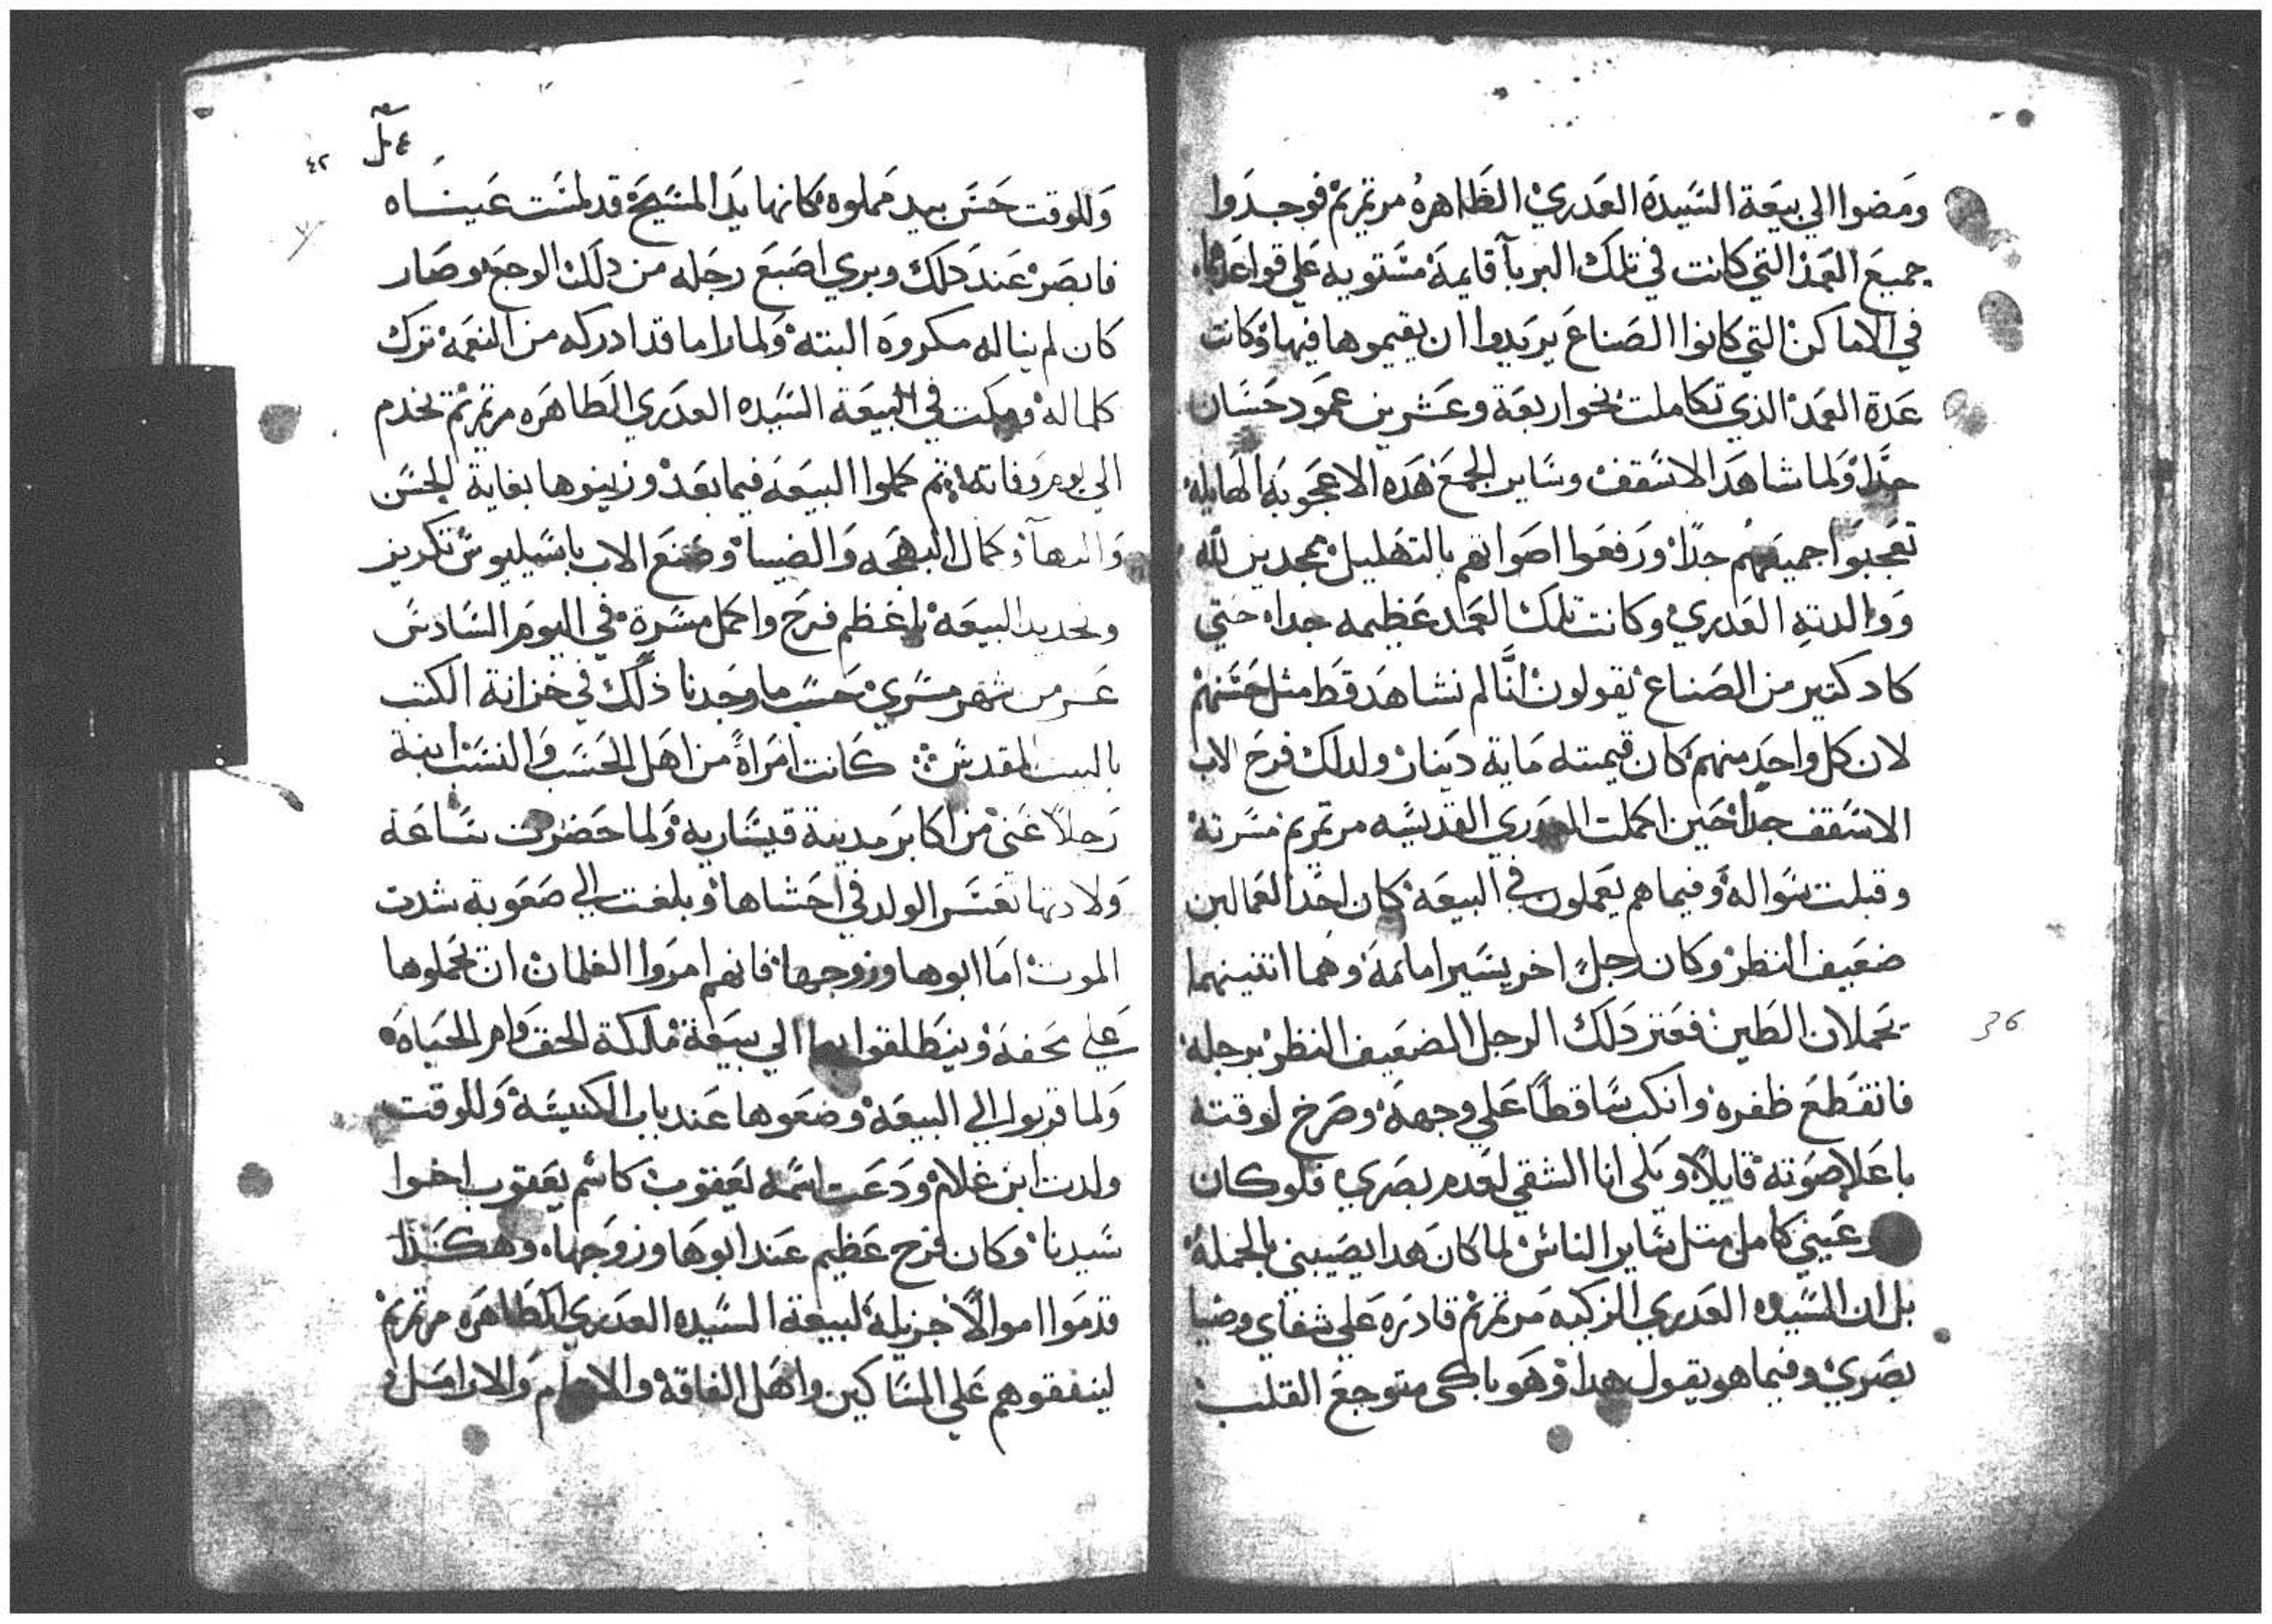 ومضوا الي بيعة السيدة العدري الطاهرة مرتمريم فوجدوا
جميع العمد التي كانت في تلك البربآ قايمة مستويه علي قواعدها
في الاماكن التي كانوا الصناع يريدوا ان يقيموها فيها وكانت
عدة العمد الذي تكاملت نحو اربعة وعشرين عمود حسان
جدا ولما شاهد الاسقف وساير الجمع هده الاعجوبة الهايلة
تعجبوا جميعهم جدا ورفعوا اصواتهم بالتهليل ممجدين لله
ووالدته العدري وكانت تلك العمد عظيمه جدا حتي
كاد كتير من الصناع يقولون انَّا لم نشاهد قط مثل حسنهم
لان كل واحدٍ منهم كان قيمته ماية دينار ولدلك فرح الاب
الاسقف جدا حين اكملت العدري القديسه مرتمريم مسرته
وقبلت سواله وفيما هم يعملون في البيعة كان احد العمالين
ضعيف النظر وكان رجلٍ اخر يسير امامه وهما اتنينهما
يحملان الطين فعتر دلك الرجل الضعيف النظر برجله
فانقطع ظفره وانكب ساقطاً علي وجهه وصرخ لوقته
باعلا صوته قايلاً ويلي انا الشقي لعدم بصري فلو كان
عيني كامل متل ساير الناس لما كان هدا يصيبني بالجملة
بل ان السيده العدري الزكيه مرتمريم قادره علي شفاي وضيا
بصري وفيما هو يقول هدا وهو باكي متوجع القلب
٤٢
وللوقت حسن بيد مملوه كانها يد المسيح قد لمست عيناه
فابصر عند دلك وبري اصبع رجله من دلك الوجع وصار
كان لم يناله مكروه البته ولما راما قد ادركه من النعمة ترك
كلما له ومكت في البيعة السيده العدري الطاهره مرتمريم يخدم
الي يوم وفاته تم كملوا البيعة فيما بعد وزينوها بغاية الحسن
والبهآ وكمال البهجه والضيا وصنع الاب باسيليوس تكريز
وتحديد البيعة باعظم فرح واكمل مسرة في اليوم السادس
عشر من شهر مسري حسب ما وجدنا ذلك في خزانة الكتب
بالبيت المقدس كانت امراةً من اهل الحسب والنسب ابنة
رجلاً غني من اكابر مدينة قيسارية ولما حضرت ساعة
ولادتها تعسر الولد في احشاها وبلغت الي صعوبة شدت
الموت اما ابوها وزوجها فانهم امروا الغلمان ان يحملوها
علي محفة وينطلقوا بها الي بيعة ملكة الحق وام الحياه
ولما قربوا الي البيعة وضعوها عند باب الكنيسة وللوقت
ولدت ابن غلام ودعت اسمه يعقوب كاسم يعقوب اخوا
سيدنا وكان فرح عظيم عند ابوها وزوجها وهكذا
قدموا اموالاً جزيلة لبيعة السيده العدري الطاهره مرتمريم
لينفقوهم علي المساكين واهل الفاقة والايتام والارامل
36